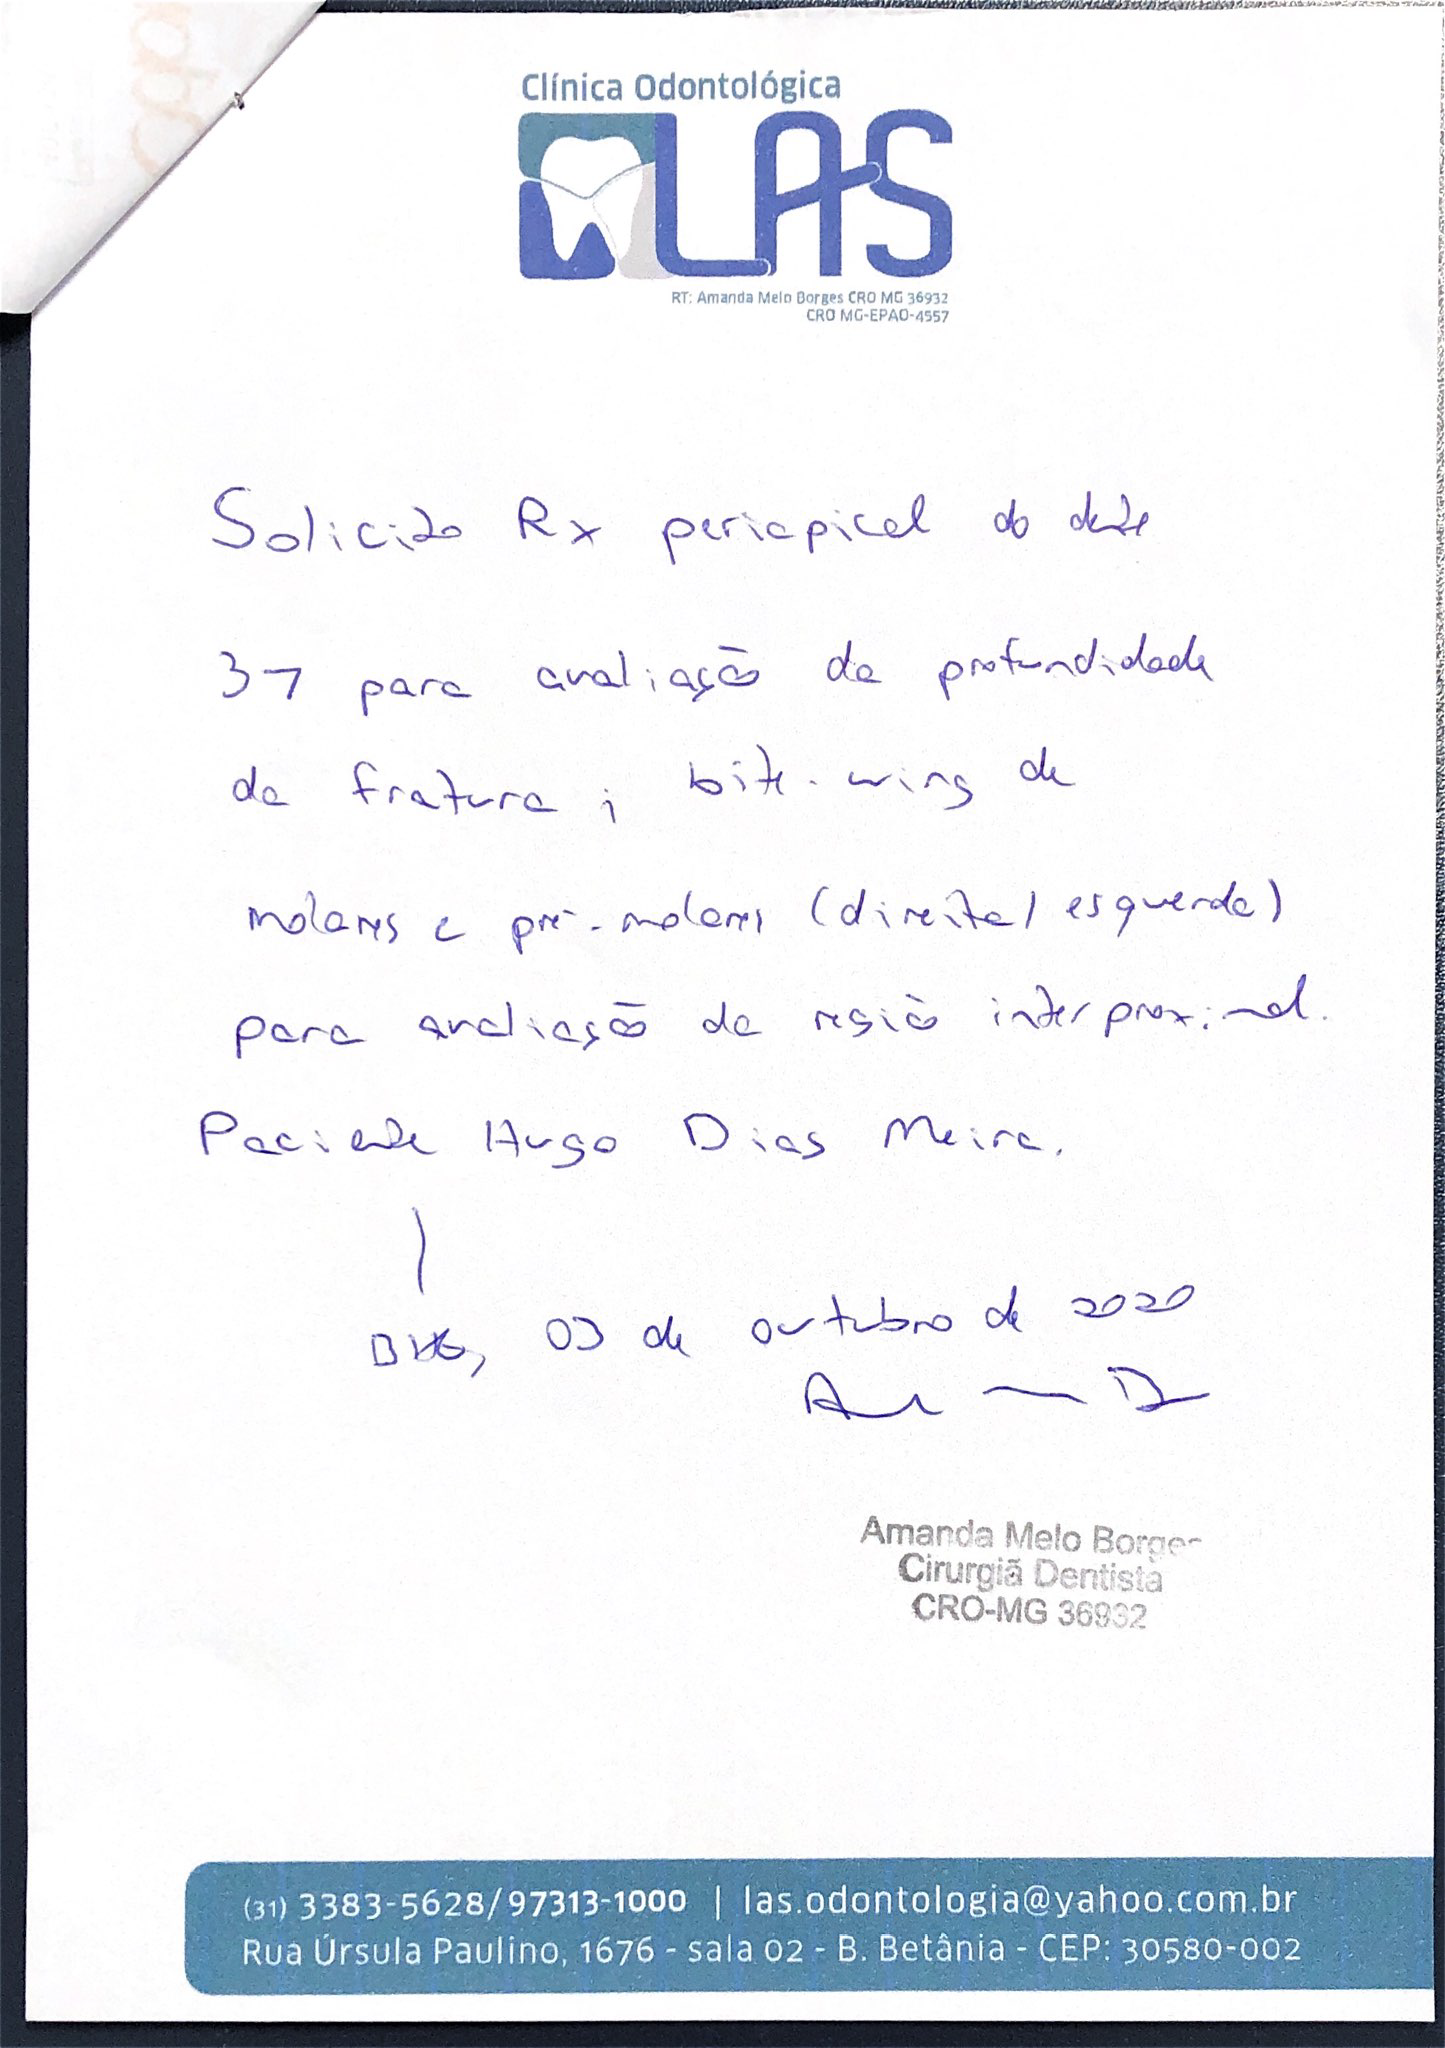 Clínica Odontológica
LAS
RT: Amanda Melo Borges CRO MG 36932
CRO MG-EPAO-4557
Solicito Rx periapical do dente
37 para avaliação da profundidade
da fratura; bite-wing de
molares e pré-molares (direita/esquerda)
para avaliação da região interproximal.
Paciente Hugo Dias Meira.
BH, 03 de outubro de 2020
Amanda Melo Borges
Cirurgiã Dentista
CRO-MG 36932
(31) 3383-5628/97313-1000 | las.odontologia@yahoo.com.br
Rua Úrsula Paulino, 1676 - sala 02 - B. Betânia - CEP: 30580-002